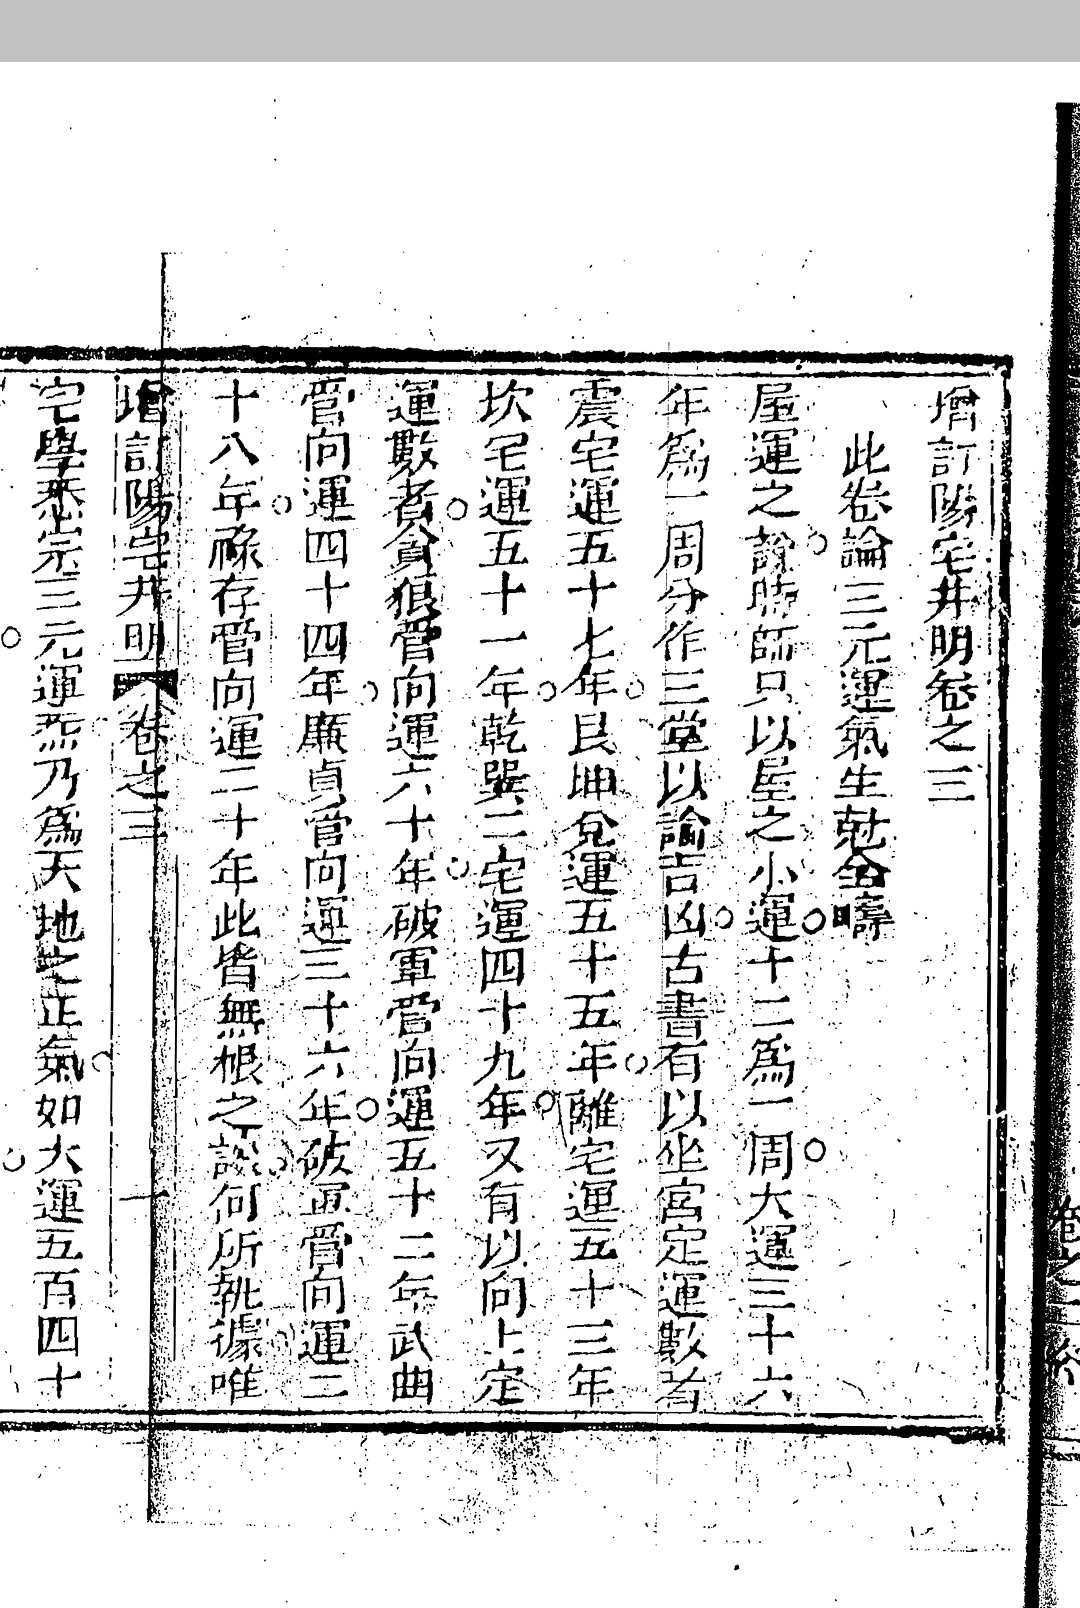 增訂陽宅井明卷之三
此卷論三元運氣生尅全疇
屋運之說時師只以屋之小運十二為一周大運三十六
年為一周分作三堂以論吉凶古書有以坐宮定運數者
震宅運五十七年艮坤兌運五十五年離宅運五十三年
坎宅運五十一年乾巽二宅運四十九年又有以向上定
運數者貪狼管向運六十年破軍管向運五十二年武曲
管向運四十四年廉貞管向運三十六年破軍管向運二
十八年祿存管向運二十年此皆無根之說何所執據唯
增訂陽宅井明 卷之三 一
宅學悉宗三元運炁乃為天地之正氣如大運五百四十